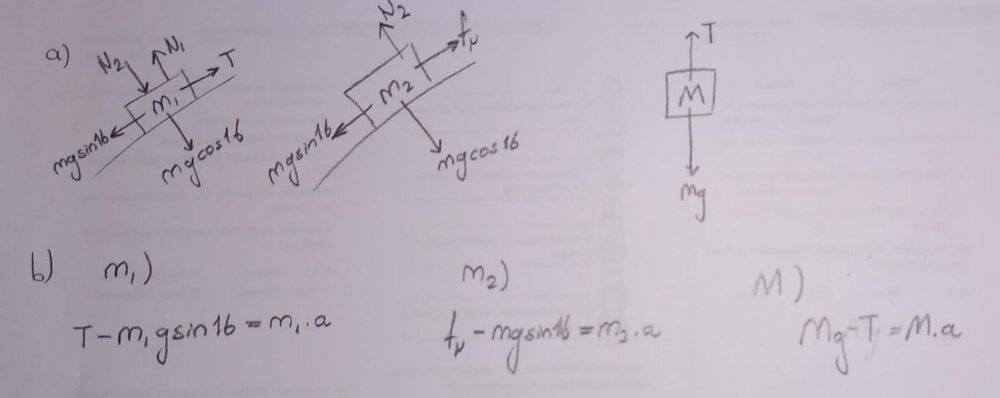 a)
N₂ N₁ T
m₁
mgsin16
mgcos16
N₂ fμ
m₂
mgsin16
mgcos16
T
M
Mg
b) m₁)
T - m₁gsin16 = m₁.a
m₂)
fμ - mgsin16 = m₂.a
M)
Mg - T = M.a